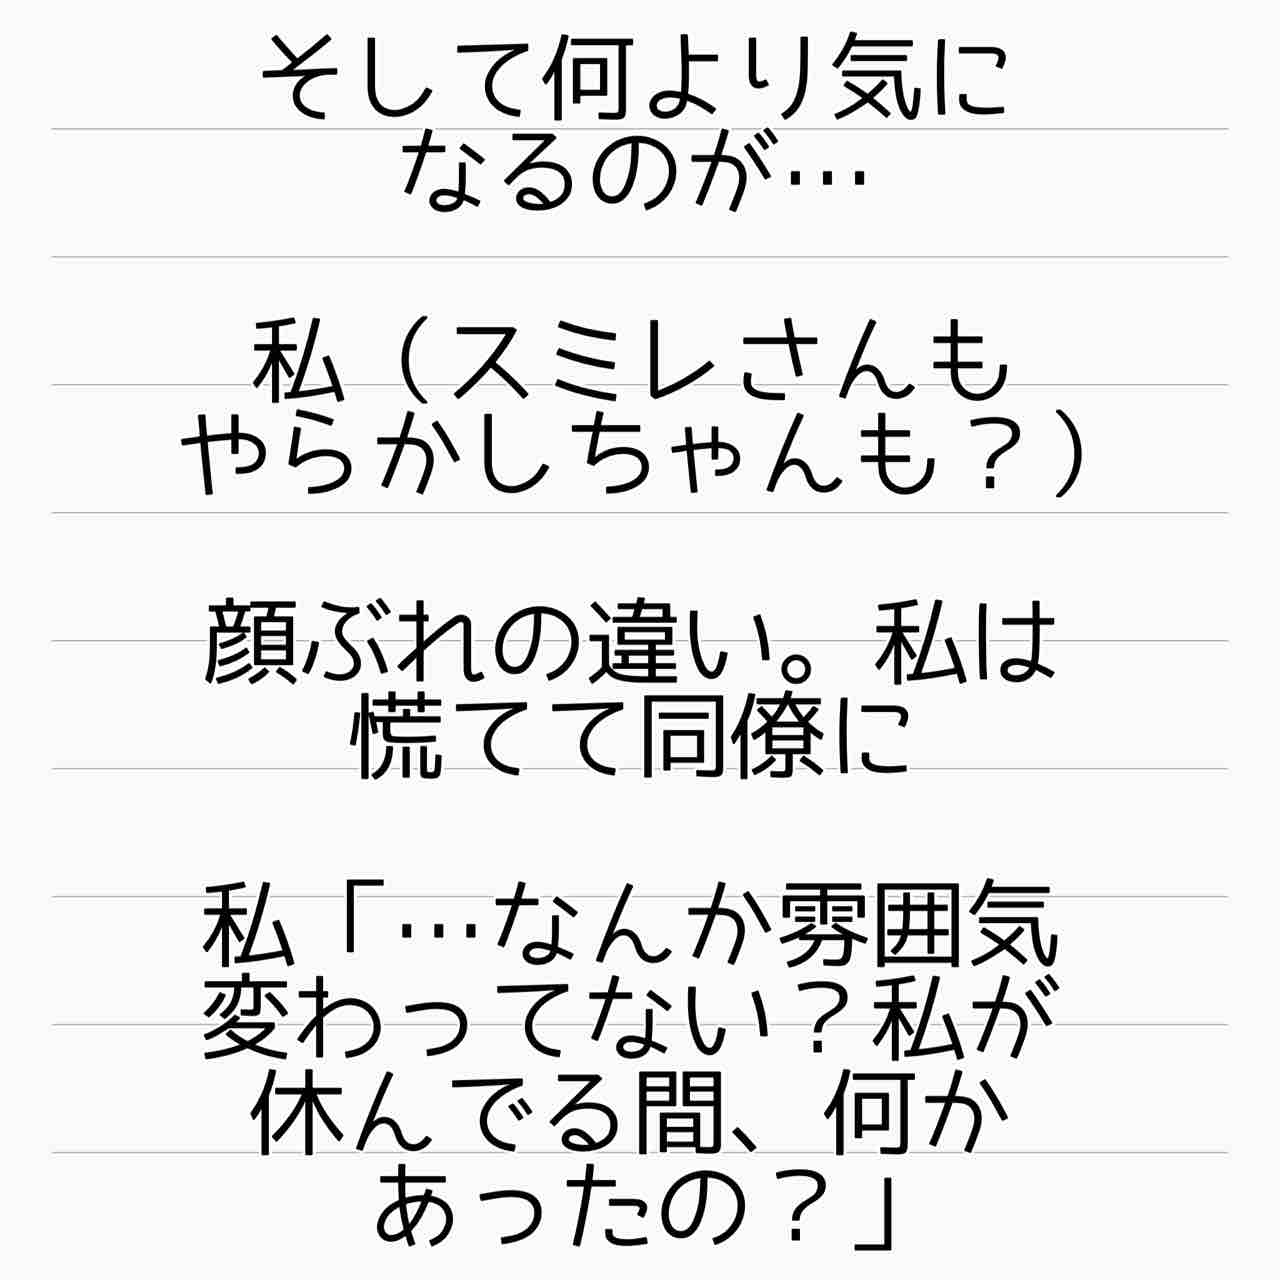 そして何より気に
なるのが…
私（スミレさんも
やらかしちゃんも？）
顔ぶれの違い。私は
慌てて同僚に
私「…なんか雰囲気
変わってない？私が
休んでる間、何か
あったの？」